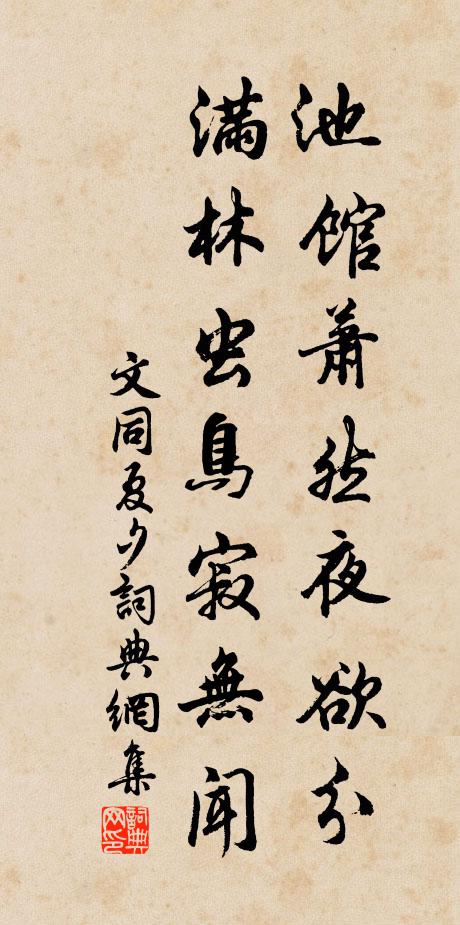 池館蕭然夜欲分
滿林虫鳥寂無聞
文同夏夕詞典網集
詞典網印